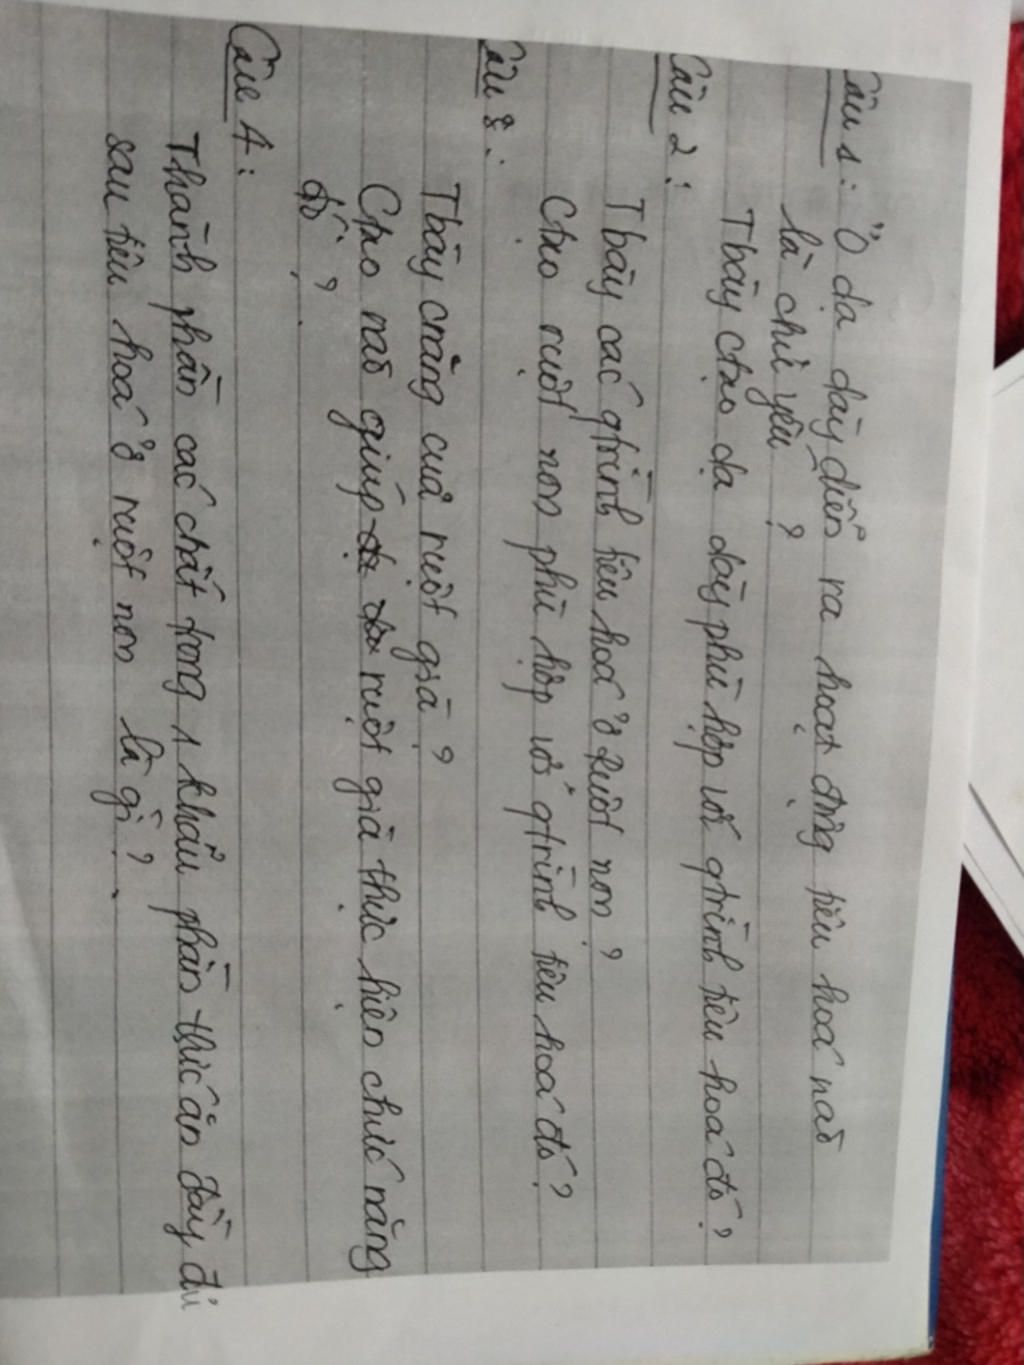 Câu 1: Ở dạ dày diễn ra hoạt động tiêu hoá nào
là chủ yếu?
Tbày ctạo dạ dày phù hợp với qtrình tiêu hoá đó?
Câu 2:
Tbày các qtrình tiêu hoá ở ruột non?
Ctạo ruột non phù hợp với qtrình tiêu hoá đó?
Câu 3:
Tbày cnăng của ruột già?
Ctạo nào giúp ruột già thực hiện chức năng
đó?
Câu 4:
Thành phần các chất trong 1 khẩu phần thức ăn đầy đủ
sau tiêu hoá ở ruột non là gì?